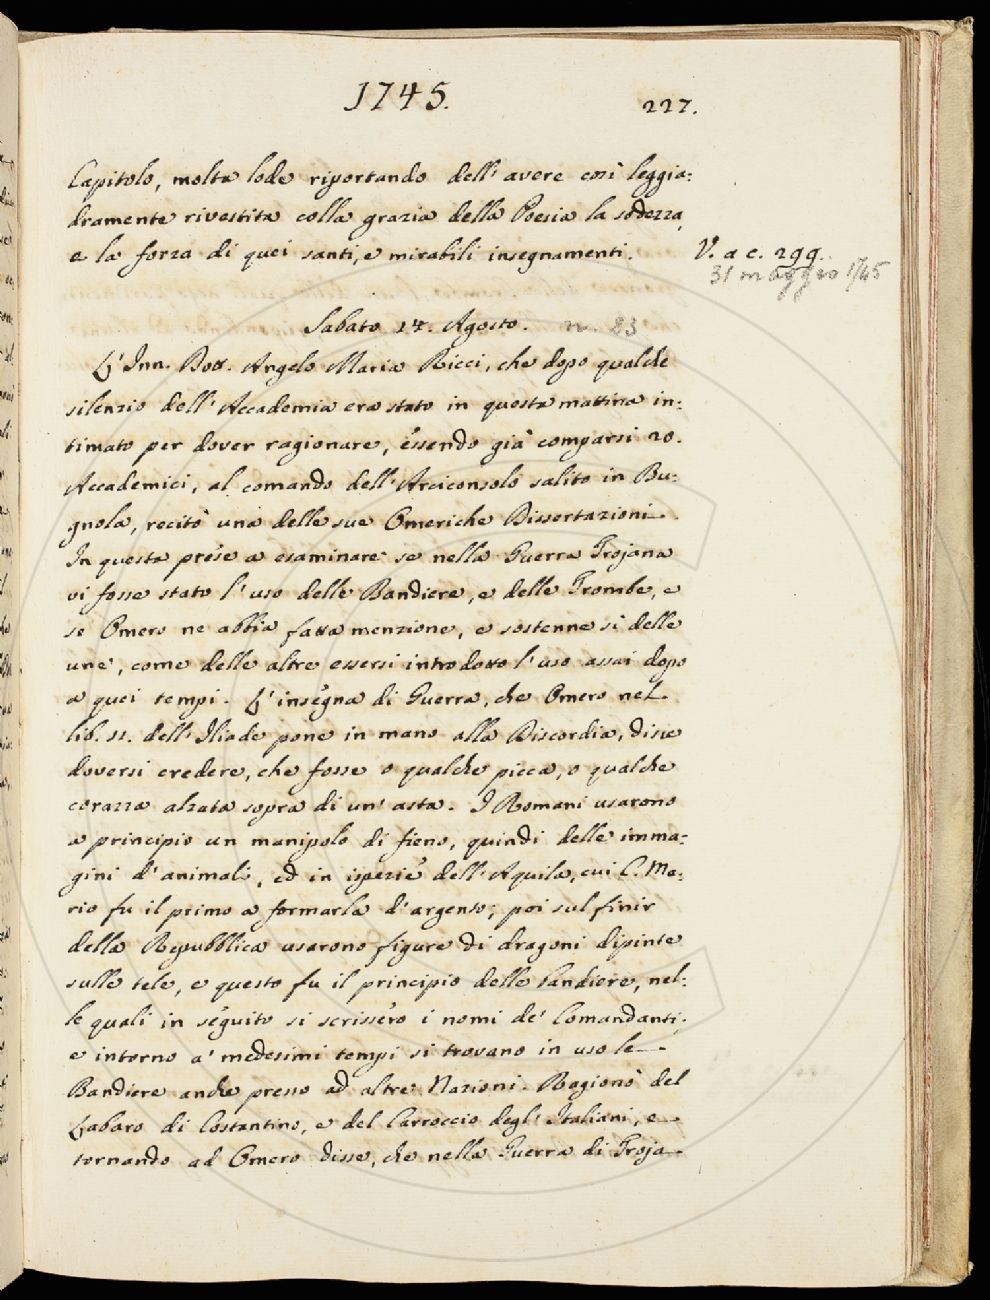 1745.
227.
Capitolo, molta lode riportando dell' avere così leggia:
dramente rivestita colla grazia della Poesia la sodezza,
e la forza di quei santi, e mirabili insegnamenti.
V. a c. 299.
31 maggio 1745
Sabato 14. Agosto. n. 23
L' Inn. Dott. Angelo Maria Ricci, che dopo qualche
silenzio dell' Accademia era stato in questa mattina in:
timato per dover ragionare, essendo già comparsi 20.
Accademici, al comando dell' Arciconsolo salito in Bu:
gnola, recitò una delle sue Omeriche Dissertazioni.
In questa prese a esaminare se nella Guerra Trojana
vi fosse stato l' uso delle Bandiere, e delle Trombe, e
se Omero ne abbia fatta menzione, e sostenne sì delle
une, come delle altre essersi introdotto l' uso assai dopo
a quei tempi. L' insegna di Guerra, che Omero nel
lib. 11. dell' Iliade pone in mano alla Discordia, disse
doversi credere, che fosse o qualche picca, o qualche
corazza alzata sopra di un' asta. I Romani usarono
a principio un manipolo di fieno, quindi delle imma:
gini d' animali, ed in ispezie dell' Aquila, cui C. Ma:
rio fu il primo a formarla d' argento; poi sul finir
della Repubblica usarono figure di dragoni dipinte
sulle tele, e questo fu il principio delle bandiere, nel:
le quali in séguito si scrissero i nomi de' Comandanti,
e intorno a' medesimi tempi si trovano in uso le
Bandiere anche presso ad altre Nazioni. Ragionò del
Labaro di Costantino, e del Carroccio degl' Italiani, e
tornando ad Omero disse, che nella Guerra di Troja